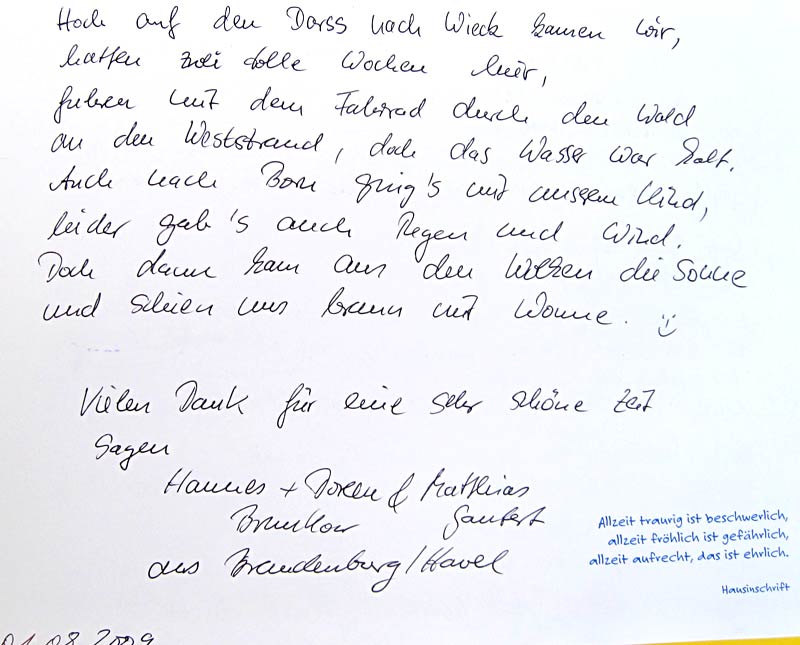 Hoch auf den Darss nach Wieck kamen wir,
hatten zwei tolle Wochen hier,
fuhren mit dem Fahrrad durch den Wald
an den Weststrand, doch das Wasser war kalt.
Auch nach Born ging's mit unserem Kind,
leider gab's auch Regen und Wind.
Doch dann kam aus den Wolken die Sonne
und schien uns braun mit Wonne.
Vielen Dank für eine sehr schöne Zeit
sagen
Hannes + Doreen & Matthias
aus Brandenburg/Havel
01.08.2009
Allzeit traurig ist beschwerlich,
allzeit fröhlich ist gefährlich,
allzeit aufrecht, das ist ehrlich.
Hausinschrift